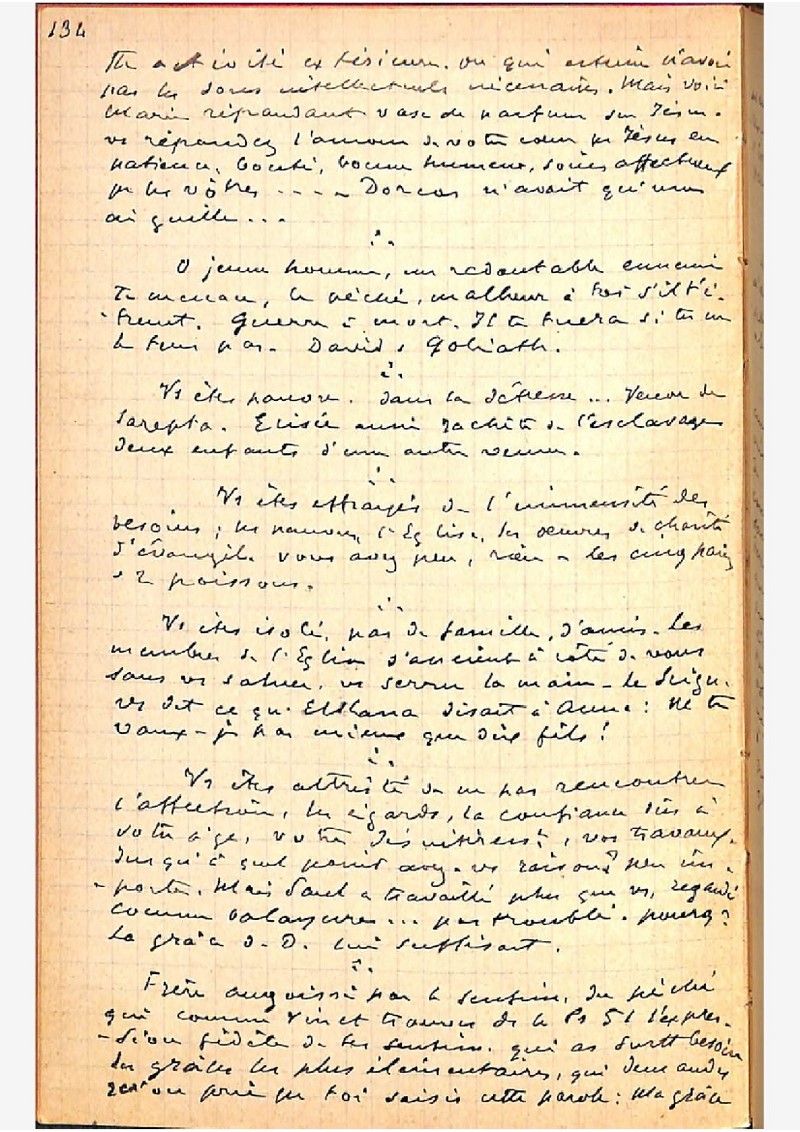 134
activité extérieure. ou qui estime n'avoir
pas les dons intellectuels nécessaires. Mais voici
Marie répandant vase de parfum sur Jésus.
vs répandez l'amour de votre cœur pr Jésus en
patience, bonté, bonne humeur, soins affectueux
pr les vôtres - - - - Dorcas n'avait qu'une
aiguille...
O jeune homme, un redoutable ennemi
te menace, le péché, malheur à toi s'il t'é-
-treint. Guerre à mort. Il te tuera si tu ne
le tues pas. David & Goliath.
Vs êtes pauvre. dans la détresse... Veuve de
Sarepta. Elisée aussi rachète de l'esclavage
deux enfants d'une autre veuve.
Vs êtes effrayés de l'immensité des
besoins; les pauvres, l'Eglise, les œuvres de charité
d'évangile. vous avez peu, rien - les cinq pains
& 2 poissons.
Vs êtes isolé, pas de famille, d'amis. Les
membres de l'Eglise à côté de vous
sans vs saluer, vs serrer la main - le Seign.
vs dit ce que Elkana disait à Anne: Ne te
vaux-je pas mieux que dix fils!
Vs êtes attristé de ne pas rencontrer
l'affection, les égards, la confiance dûs à
votre âge, votre , vos travaux.
Jusqu'à quel point avez-vs raison? peu im-
-porte. Mais Paul a travaillé plus que vs, regardé
comme balayures... pas troublé. pourq?
La grâce de D. lui suffisait.
Frère angoissé par le sentim. du péché
qui comme Vinet trouves ds le Ps 51 l'expres-
-sion fidèle de tes sentim. qui as surtt besoin
des grâces les plus élémentaires, qui demandes
qu'on prie pr toi saisis cette parole: Ma grâce